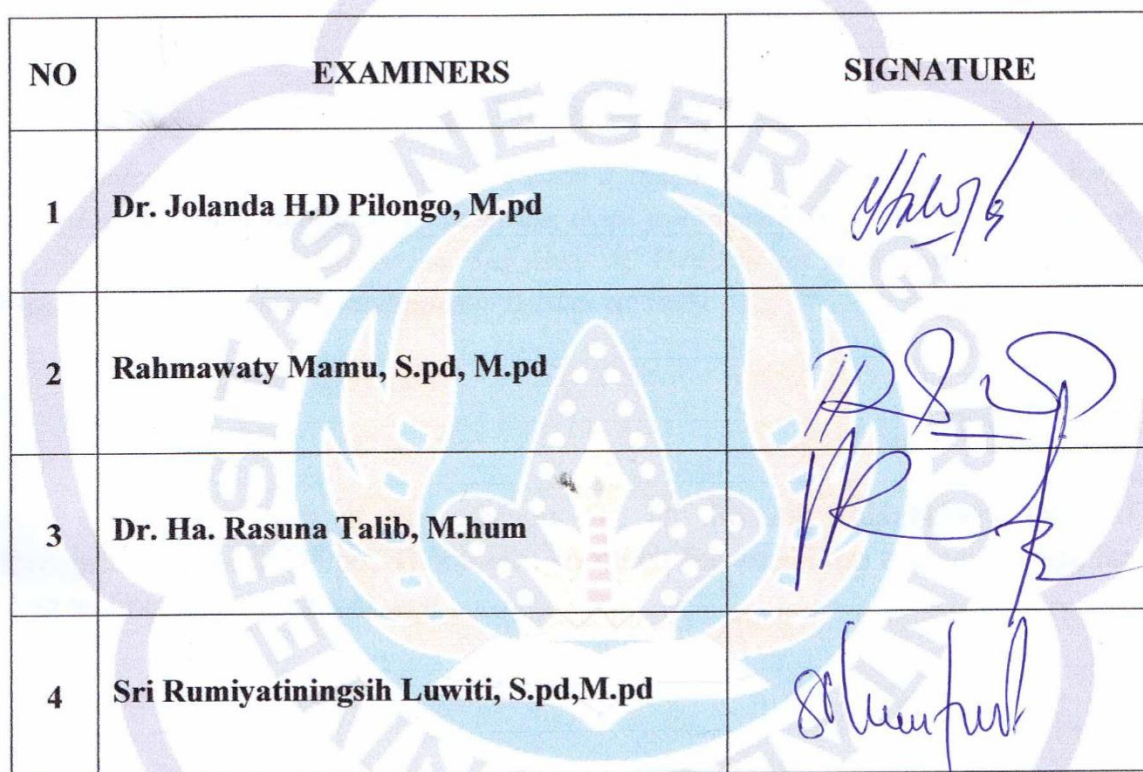 NO EXAMINERS SIGNATURE
1 Dr. Jolanda H.D Pilongo, M.pd
2 Rahmawaty Mamu, S.pd, M.pd
3 Dr. Ha. Rasuna Talib, M.hum
4 Sri Rumiyatiningsih Luwiti, S.pd,M.pd
NEGERI